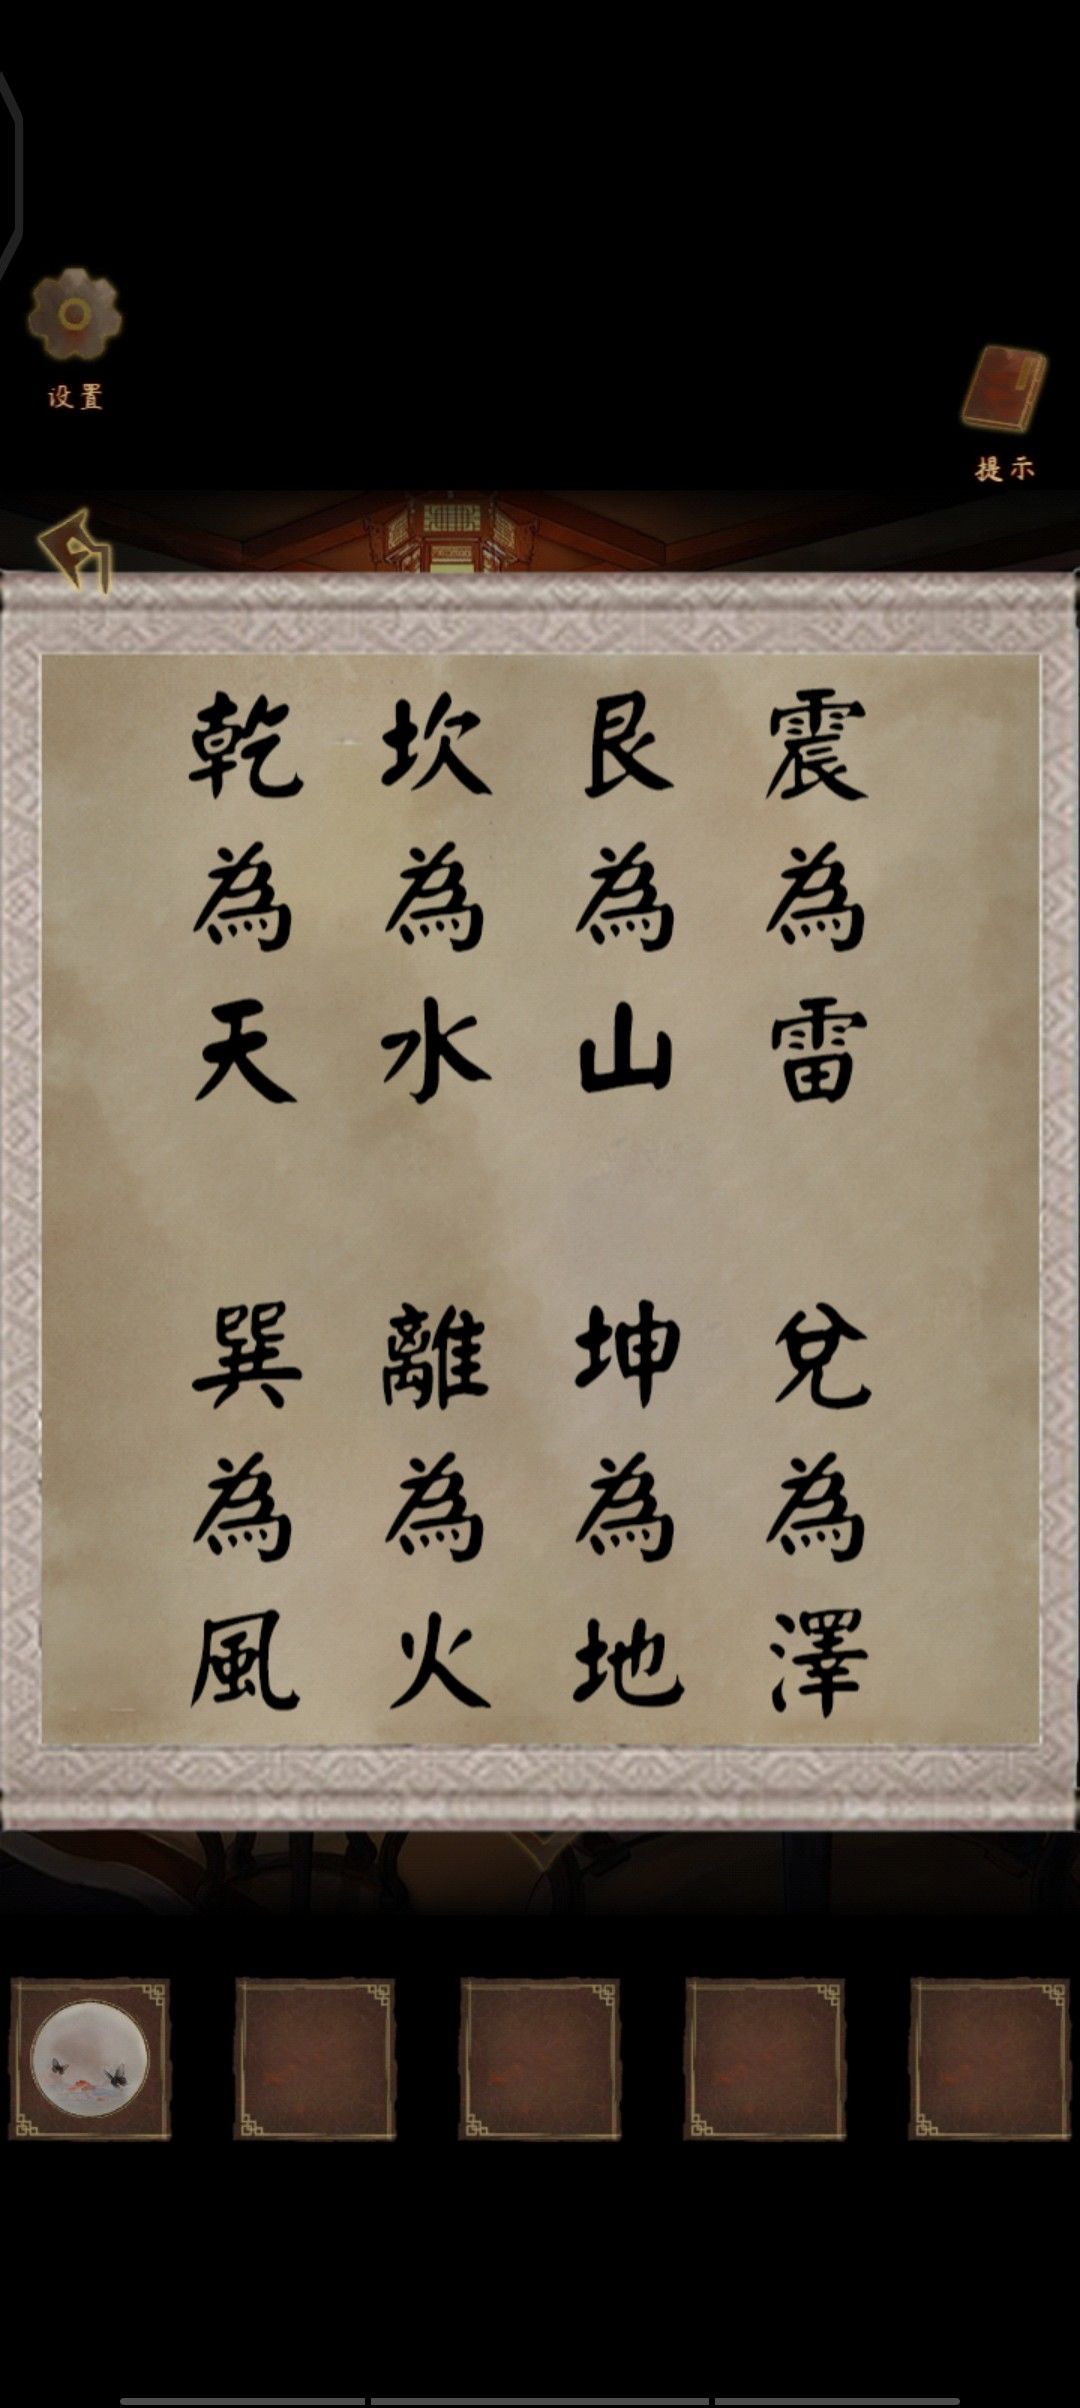 设置
提示
乾為天
坎為水
艮為山
震為雷
巽為風
離為火
坤為地
兌為澤